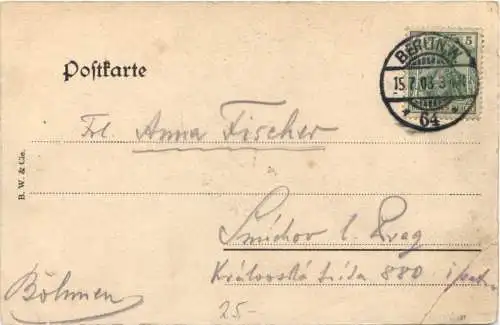 Postkarte
5
BERLIN.N.
15.7.03.3
* 64 *
Frl. Anna Fischer
B. W. & Cie.
Smíchov b. Prag
Královská třída 880
Böhmen
25-